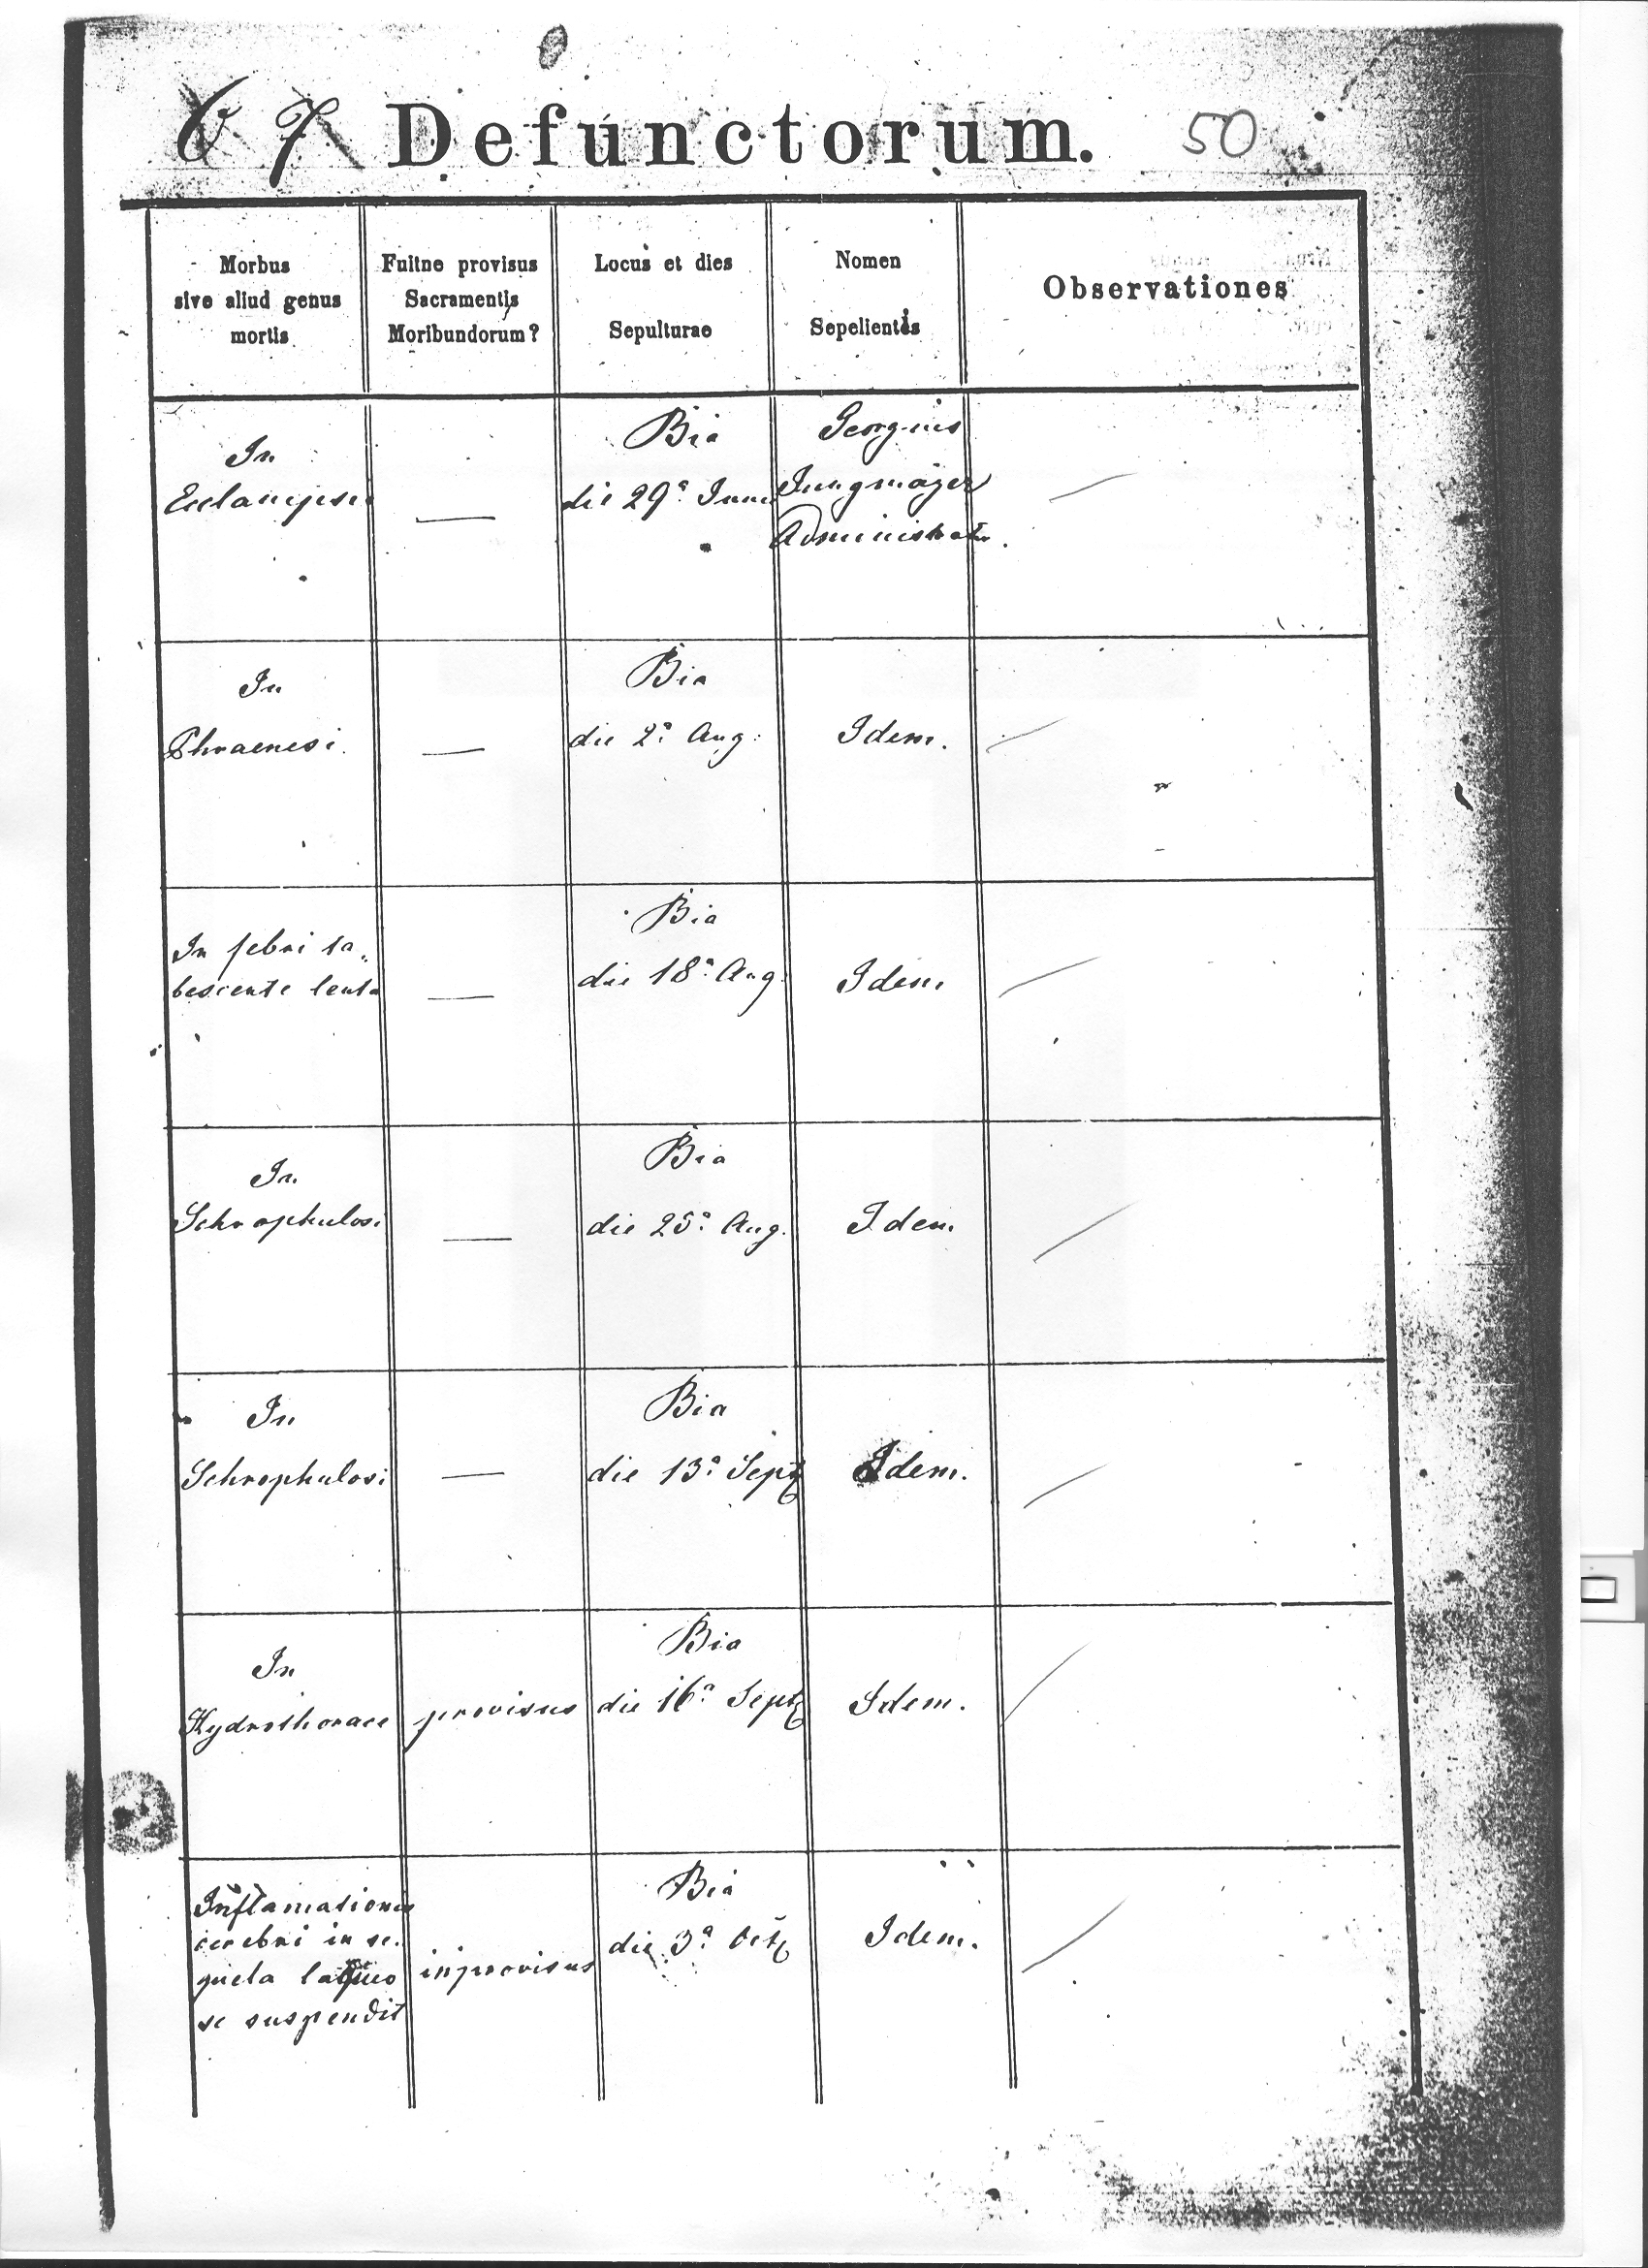 67 Defunctorum. 50
Morbus
sive aliud genus
mortis
Fuitne provisus
Sacramentis
Moribundorum?
Locus et dies
Sepulturae
Nomen
Sepelientis
Observationes
In
Eclampsi
—
Bia
die 29ª Junii
Georgius
Jungmajer
Administrator.
In
Phraenesi.
—
Bia
die 2ª Aug:
Idem.
In febri ta„
bescente lenta
—
Bia
die 18ª Aug:
Idem
In
Schrophulosi
—
Bia
die 25ª Aug.
Idem
In
Schrophulosi
—
Bia
die 13ª Sept
Idem.
In
Hydrothorace
provisus
Bia
die 16ª Sept
Idem.
Inflamationis
cerebri in se.
quela laqueo
se suspendit
inprovisus
Bia
die 3ª Oct
Idem.